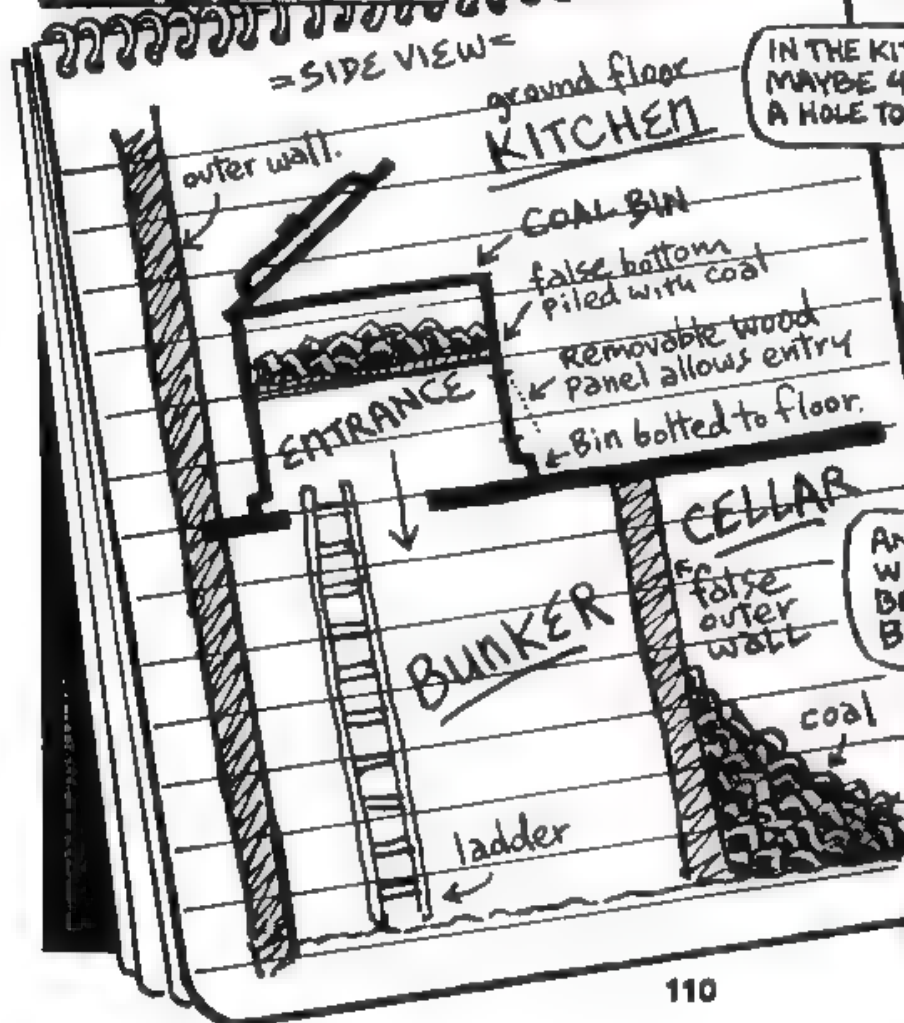 =SIDE VIEW=
ground floor
KITCHEN
IN THE KIT
MAYBE 4
A HOLE TO
outer wall.
COAL BIN
false bottom
piled with coal
Removable wood
panel allows entry
Bin bolted to floor.
ENTRANCE
CELLAR
false
outer
wall
BUNKER
coal
ladder
110